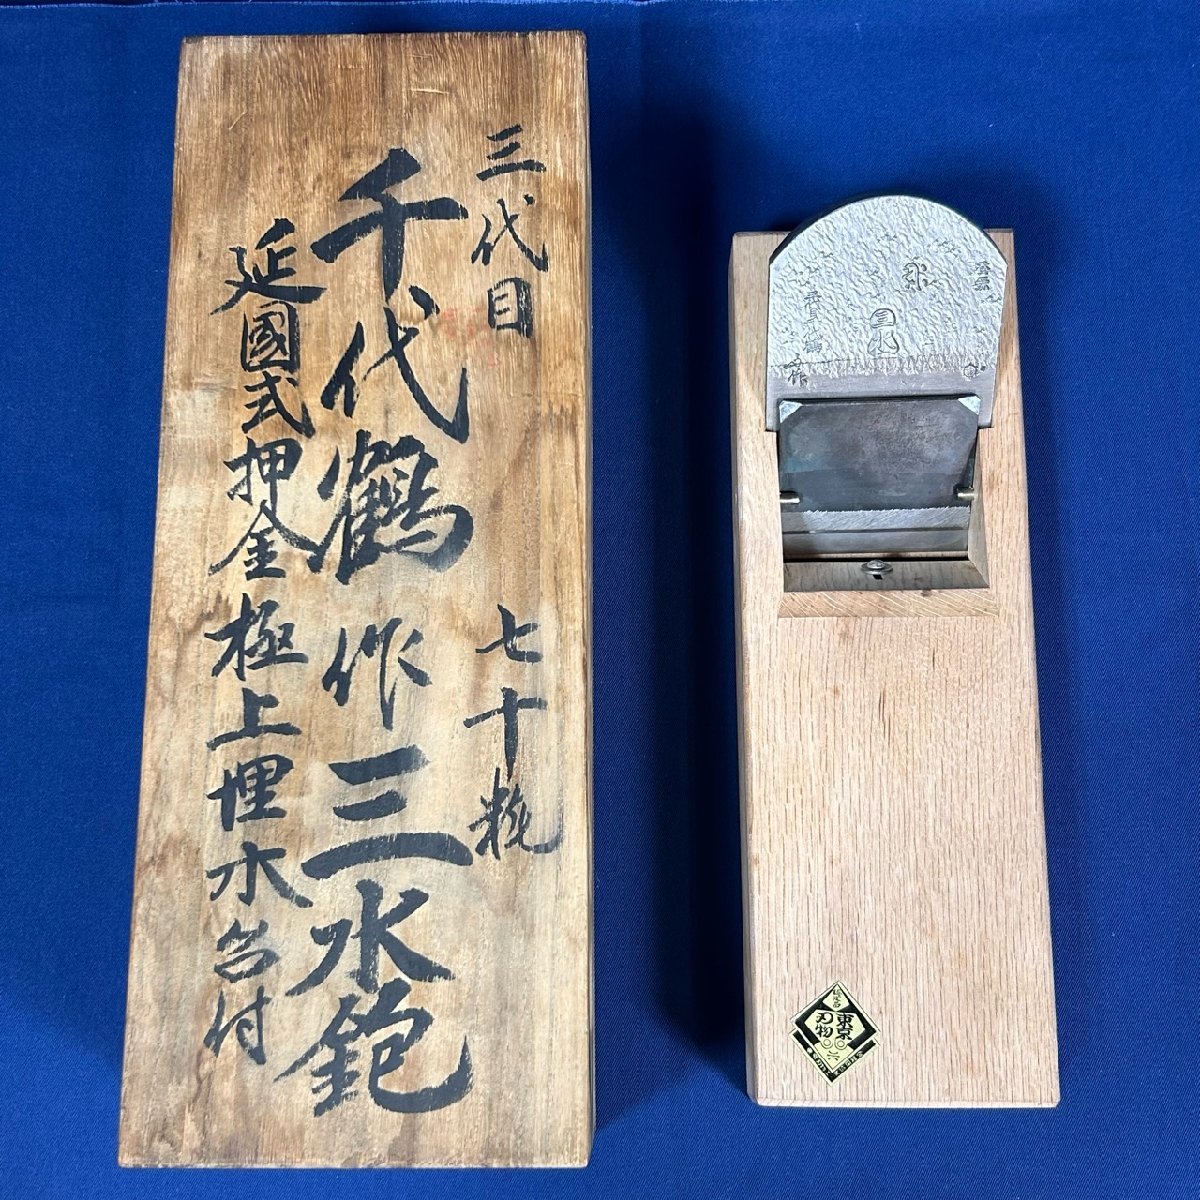 三代目 七十粍
千代鶴作三水鉋
延國式押金極上埋木台付
三水
作
東京
刃物